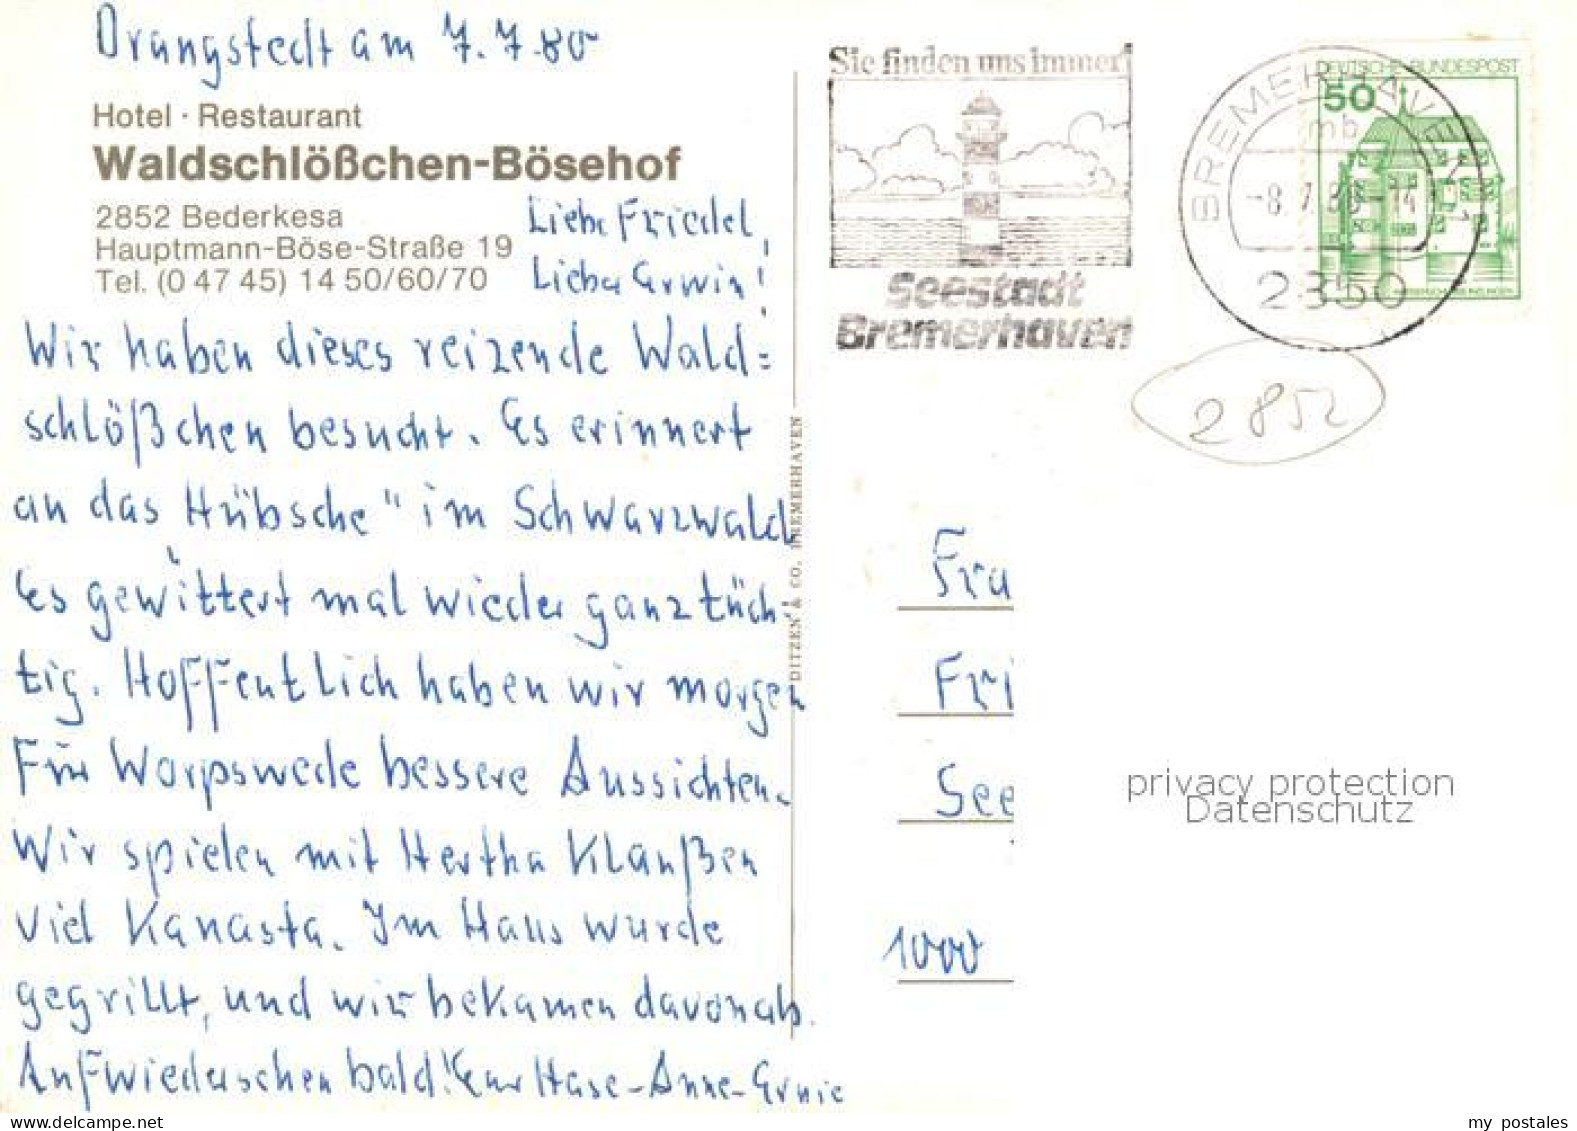 Drangstedt am 7.7.80
Hotel · Restaurant
Waldschlößchen-Bösehof
2852 Bederkesa
Hauptmann-Böse-Straße 19
Tel. (0 47 45) 14 50/60/70
Liebe Friedel,
Lieber Erwin!
Wir haben dieses reizende Wald=
schlößchen besucht. Es erinnert
an das Hübsche" im Schwarzwald
Es gewittert mal wieder ganz tüch=
tig. Hoffentlich haben wir morgen
Für Worpswede bessere Aussichten.
Wir spielen mit Hertha Klaußen
viel Kanasta. Im Haus wurde
gegrillt, und wir bekamen davon ab.
Auf Wiedersehen bald! Eure Hase-Anne-Ernie
DITZEN & CO. BREMERHAVEN
Sie finden uns immer!
Seestadt
Bremerhaven
DEUTSCHE BUNDESPOST
50
BREMERHAVEN 1
mb
-8.7.80-14
2850
2852
Fra
Fri
See
1000
privacy protection
Datenschutz
my postales